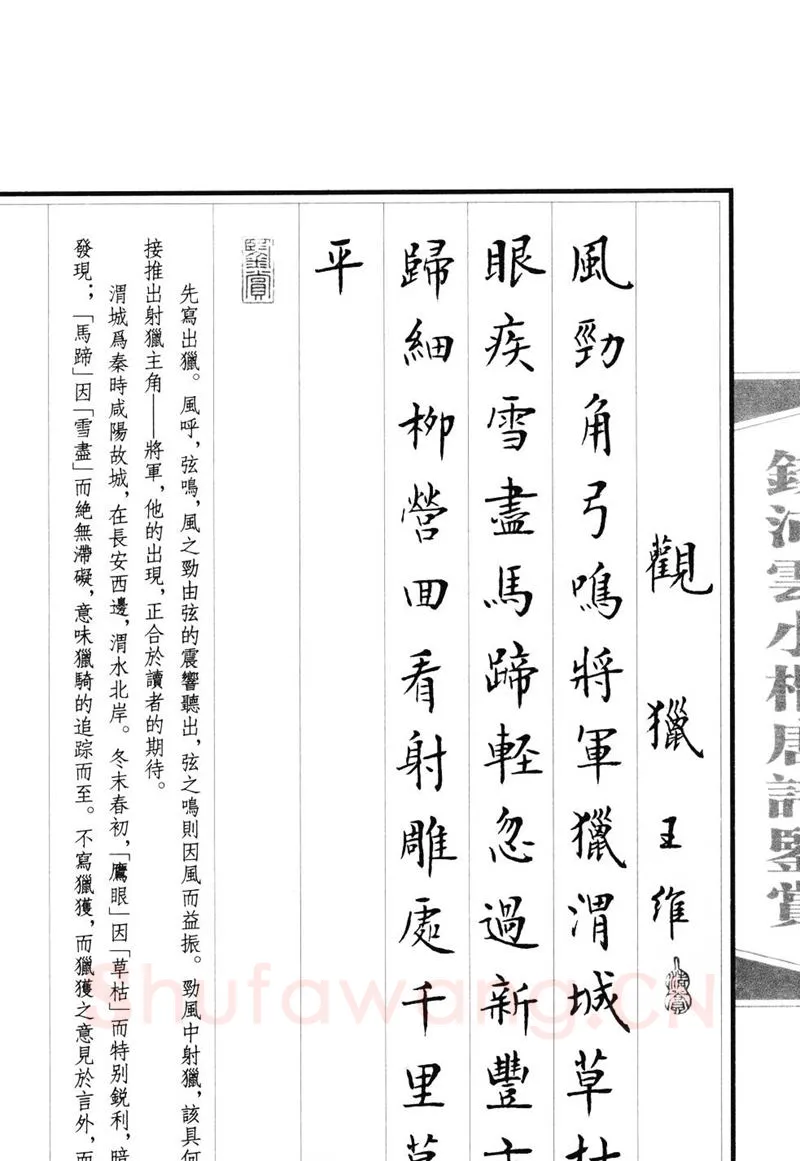 觀獵 王維
風勁角弓鳴將軍獵渭城草枯
眼疾雪盡馬蹄輕忽過新豐
歸細柳營回看射雕處千里
平
鑒賞
先寫出獵。風呼，弦鳴，風之勁由弦的震響聽出，弦之鳴則因風而益振。勁風中射獵，該具何
接推出射獵主角——將軍，他的出現，正合於讀者的期待。
渭城爲秦時咸陽故城，在長安西邊，渭水北岸。冬末春初，「鷹眼」因「草枯」而特别鋭利，暗
發現；「馬蹄」因「雪盡」而絶無滯礙，意味獵騎的追踪而至。不寫獵獲，而獵獲之意見於言外，而
雲小楷唐詩鑒賞
Shufawang.CN